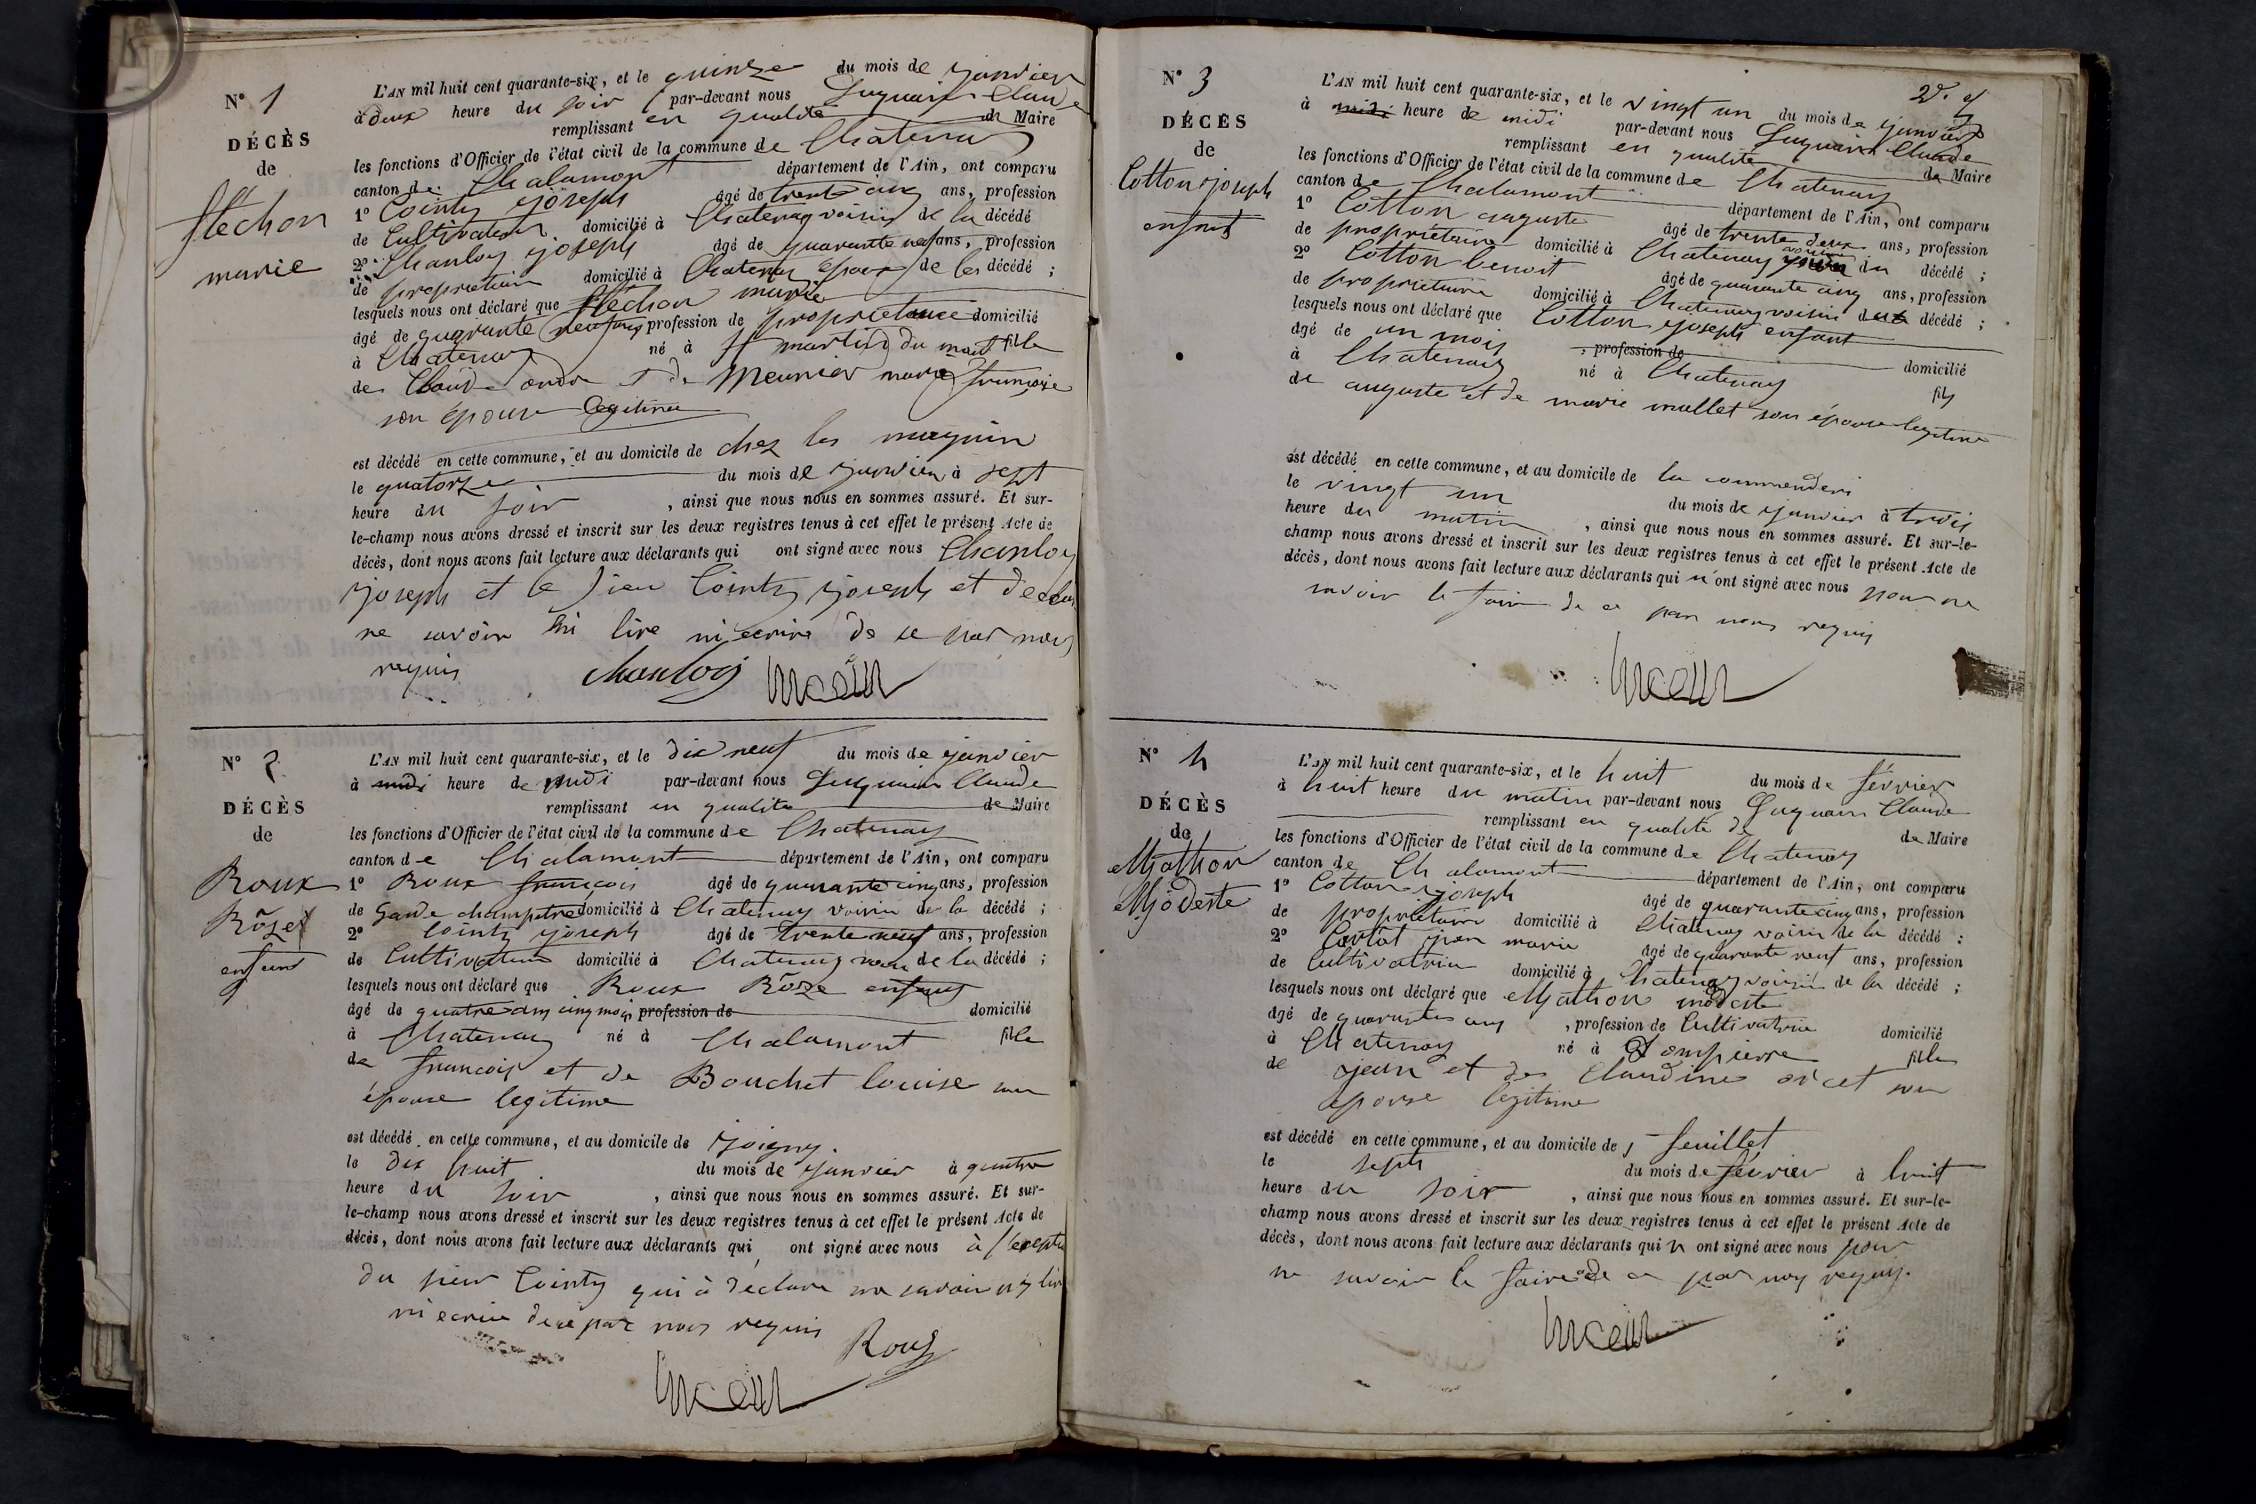 N° 1
DÉCÈS
de
fléchon
marie
L'AN mil huit cent quarante-six, et le quinze du mois de janvier
à deux heure du soir par-devant nous Claude
remplissant en qualité de Maire
les fonctions d'Officier de l'état civil de la commune de Chatenay
canton de Chalamont département de l'Ain, ont comparu
1° Cointy joseph âgé de trente cinq ans, profession
de Cultivateur domicilié à Chatenay voisin de la décédé
2° Chanloy joseph âgé de quarante neuf ans, profession
de propriétaire domicilié à Chatenay époux de la décédé ;
lesquels nous ont déclaré que fléchon marie
âgé de quarante neuf ans profession de propriétaire domicilié
à Chatenay né à St martin du mont fille
de Claude andré et de Meunier marie françoise
son épouse légitime
est décédé en cette commune, et au domicile de chez les maguin
le quatorze du mois de janvier à sept
heure du soir , ainsi que nous nous en sommes assuré. Et sur-
le-champ nous avons dressé et inscrit sur les deux registres tenus à cet effet le présent Acte de
décès, dont nous avons fait lecture aux déclarants qui ont signé avec nous Chanloy
joseph et le sieur Cointy joseph et déclaré
ne savoir ni lire ni écrire de ce par nous
requis Chanloy
N° 2
DÉCÈS
de
Roux
Rôze
enfant
L'AN mil huit cent quarante-six, et le dix neuf du mois de janvier
à midi heure de midi par-devant nous Claude
remplissant en qualité de Maire
les fonctions d'Officier de l'état civil de la commune de Chatenay
canton de Chalamont département de l'Ain, ont comparu
1° Roux françois âgé de quarante cinq ans, profession
de Garde champetre domicilié à Chatenay voisin de la décédé ;
2° Cointy joseph âgé de trente neuf ans, profession
de Cultivateur domicilié à Chatenay voisin de la décédé ;
lesquels nous ont déclaré que Roux Rôze enfant
âgé de quatre ans cinq mois profession de domicilié
à Chatenay né à Chalamont fille
de françois et de Bouchet louise son
épouse légitime
est décédé en cette commune, et au domicile de joigny.
le dix huit du mois de janvier à quatre
heure du soir , ainsi que nous nous en sommes assuré. Et sur-
le-champ nous avons dressé et inscrit sur les deux registres tenus à cet effet le présent Acte de
décès, dont nous avons fait lecture aux déclarants qui ont signé avec nous à l'excepté
du sieur Cointy qui à déclaré ne savoir ny lire
ni écrire de ce par nous requis
Roux
N° 3
DÉCÈS
de
Cotton joseph
enfant
L'AN mil huit cent quarante-six, et le vingt un du mois de janvier
à midi heure de midi par-devant nous Claude
remplissant en qualité de Maire
les fonctions d'Officier de l'état civil de la commune de Chatenay
canton de Chalamont département de l'Ain, ont comparu
1° Cotton auguste âgé de trente deux ans, profession
de propriétaire domicilié à Chatenay voisin du décédé ;
2° Cotton benoit âgé de quarante cinq ans, profession
de propriétaire domicilié à Chatenay voisin du décédé ;
lesquels nous ont déclaré que Cotton joseph enfant
âgé de un mois , profession de domicilié
à Chatenay né à Chatenay fils
de auguste et de marie mallet son épouse légitime
est décédé en cette commune, et au domicile de la commenderi
le vingt un du mois de janvier à trois
heure du matin , ainsi que nous nous en sommes assuré. Et sur-le-
champ nous avons dressé et inscrit sur les deux registres tenus à cet effet le présent Acte de
décès, dont nous avons fait lecture aux déclarants qui n'ont signé avec nous pour ne
savoir le faire de ce par nous requis
N° 4
DÉCÈS
de
Mathon
Modeste
L'AN mil huit cent quarante-six, et le huit du mois de février
à huit heure du matin par-devant nous Claude
remplissant en qualité de de Maire
les fonctions d'Officier de l'état civil de la commune de Chatenay
canton de Chalamont département de l'Ain, ont comparu
1° Cotton joseph âgé de quarante cinq ans, profession
de propriétaire domicilié à Chatenay voisin de la décédé ;
2° jean marie âgé de quarante neuf ans, profession
de Cultivatrice domicilié à Chatenay voisin de la décédé ;
lesquels nous ont déclaré que Mathon modeste
âgé de quarante ans , profession de Cultivatrice domicilié
à Chatenay né à Dompierre fille
de jean et de Claudine son
épouse légitime
est décédé en cette commune, et au domicile de feuillet
le sept du mois de février à huit
heure du soir , ainsi que nous nous en sommes assuré. Et sur-le-
champ nous avons dressé et inscrit sur les deux registres tenus à cet effet le présent Acte de
décès, dont nous avons fait lecture aux déclarants qui n ont signé avec nous pour
ne savoir le faire de ce par nous requis.